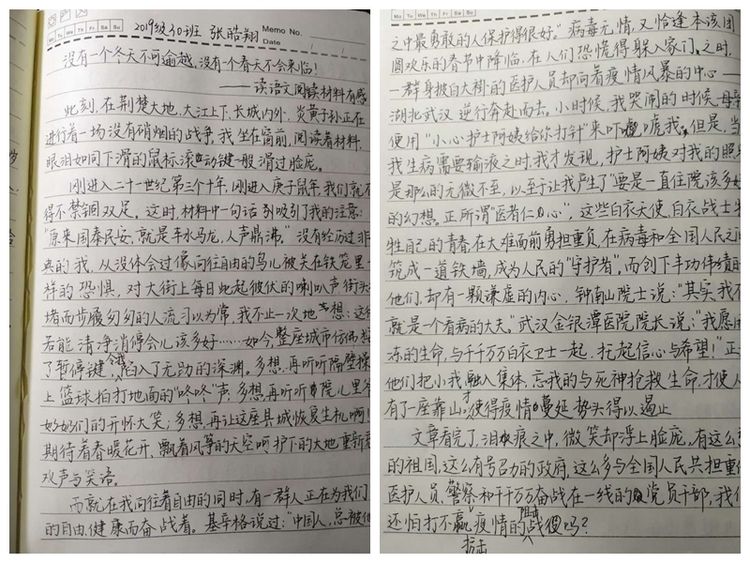 2019级30班 张皓翔 Memo No.
Mo Tu We Th Fr Sa Su Date
没有一个冬天不可逾越,没有一个春天不会来临!
——读语文阅读材料有感
此刻,在荆楚大地,大江上下,长城内外,炎黄子孙正在
进行着一场没有硝烟的战争,我坐在窗前,阅读着材料,
眼泪如同下滑的鼠标滚动键一般滑过脸庞。
刚进入二十一世纪第三个十年,刚进入庚子鼠年,我们就不
得不禁锢双足。这时,材料中一句话吸引了我的注意:
"原来国泰民安,就是车水马龙,人声鼎沸。"没有经历过非
典的我,从没体会过像向往自由的鸟儿被关在铁笼里一
样的恐惧,对大街上每日此起彼伏的喇叭声街头
堵而步履匆匆的人流习以为常,我不止一次地想:这
若能清净消停会儿该多好……如今,整座城市仿佛按
了暂停键,陷入了无助的深渊。多想,再听听隔壁操
上篮球拍打地面的"咚咚"声;多想,再听听院儿里爷
奶奶们的开怀大笑;多想,再让这座县城恢复生机啊!
期待着春暖花开,飘着风筝的天空呵护下的大地重新
欢声与笑语。
而就在我向往着自由的同时,有一群人正在为我们
的自由、健康而奋战着。基辛格说过:"中国人,总被他
Mo Tu We Th Fr Sa Su Date
之中最勇敢的人保护得很好。"病毒无情,又恰逢本该团
圆欢乐的春节中降临,在人们恐慌得躲入家门之时,
一群身披白大褂的医护人员却向着疫情风暴的中心——
湖北武汉逆行奔赴而去。小时候,我哭闹的时候,母亲
便用"小心护士阿姨给你打针"来吓唬我,但是,当
我生病需要输液之时,我才发现,护士阿姨对我的照
是那么的无微不至,以至于让我产生了"要是一直住院该多
的幻想。正所谓"医者仁心",这些白衣天使,白衣战士牺
牲自己的青春,在大难面前勇担重负,在病毒和全国人民之间
筑成一道铁墙,成为人民的"守护者",而创下丰功伟绩的
他们,却有一颗谦虚的内心,钟南山院士说:"其实,我不
就是一个看病的大夫。"武汉金银潭医院院长说:"我愿用
冻的生命,与千千万万白衣卫士一起,托起信心与希望!"正
他们把小我融入集体,忘我的与死神抢救生命,才使人
有了一座靠山,才使得疫情蔓延势头得以遏止
文章看完了,泪痕之中,微笑却浮上脸庞,有这么
的祖国,这么有号召力的政府,这么多与全国人民共担重
医护人员、警察和千千万万奋战在一线的党员干部,我们
还怕打不赢疫情的阻击战役吗?